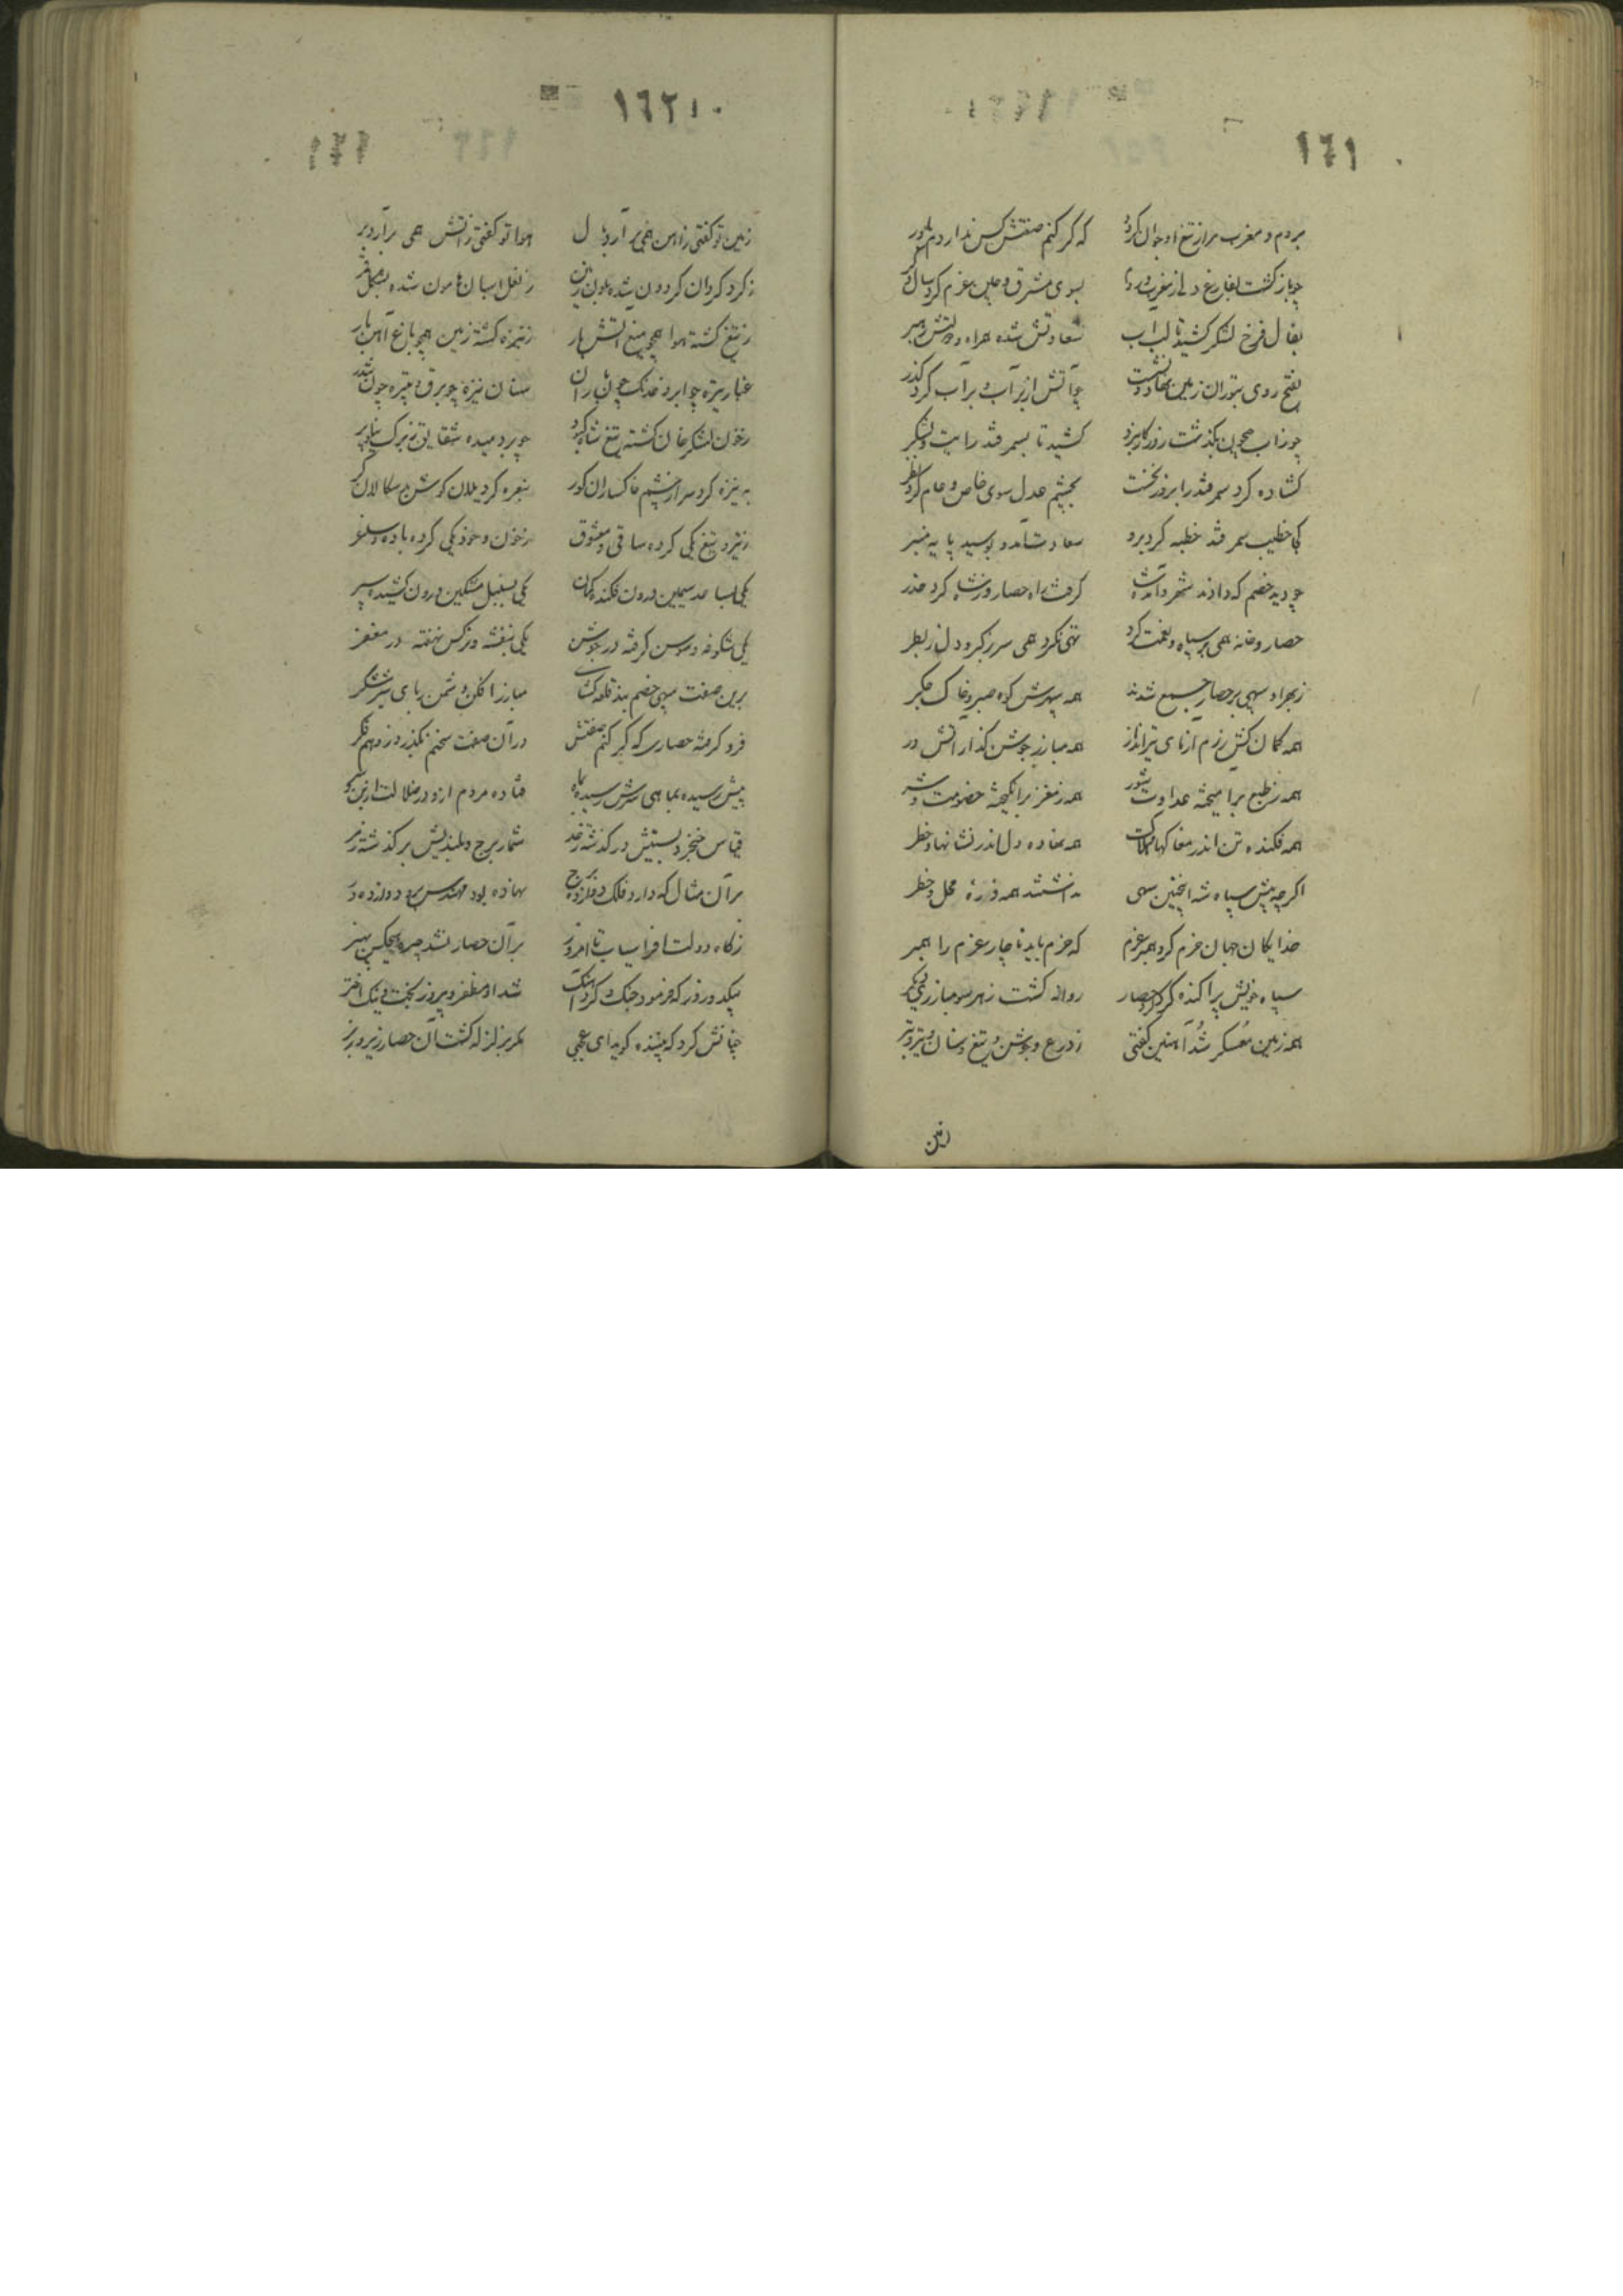 ١٦١
بروم و مغرب مر از تیغ او جوان کرد که گر کنم صفتش کس ندارد
چو باز گشت بفارغ دلی ز مغرب بسوی مشرق و چین عزم کرد
بفال فرخ لشکر کشید تا لب آب سعادتش شده همراه و دولتش رهبر
بفتح روی بتوران زمین نهاد چو آتش از بر آب و بر آب کرد گذر
چو زاب جیحون بگذشت کشید تا بسمرقند رایت و لشکر
گشاده کرد سمرقند را بروز نخست بچشم عدل سوی خاص و عام کرد نظر
کجا خطیب سمرقند خطبه کرد برو سعادت آمد و بوسید پایه منبر
چو دید خصم که دادند شهر گرفت راه حصار و ز شاه کرد حذر
حصار و خانه همی پر سپاه و نعمت کرد تهی نکرد همی سر ز کبر و دل ز بطر
ز بهر او سپهی بر حصار جمع شدند همه
همه کمان کش رزم آزمای تیرانداز همه مبارز جوشن گذار آتش در
همه ز طبع برآمیخته عداوت و شور همه ز مغز برانگیخته خصومت و شر
همه فکنده تن اندر مغاکهای هلاک همه نهاده دل اندر نشانهای خطر
اگر چه پیش سپاه شه اینچنین سپهی نداشتند همه ذره محل و خطر
خدایگان جهان حزم کرد همبر عزم که حزم باید ناچار عزم را همبر
سپاه خویش پراکنده کرد گرد حصار روانه گشت ز هر سو مبارزی
همه زمین معسکر شد آهنین گفتی ز درع و جوشن و تیغ و سنان و تیر و تبر
زمین
١٦٢
زمین تو گفتی ز آهن همی بر آرد هوا تو گفتی ز آتش همی برآرد پر
ز گرد گردان گردون شده بلون زمین ز نعل اسبان هامون شده بشکل
ز تیغ گشته هوا همچو میغ آتش بار ز نیزه گشته زمین همچو باغ آهن بار
غبار تیره چو ابر و خدنگ چون باران سنان نیزه چو برق و تبیره چون تندر
ز خون لشکر خان گشته تیغ شاه کبود چو بردمیده شقایق ز برگ نیلوفر
به نیزه کرد سر از چشم خاکساران کور بنعره کرد یلان گوش بدسگالان کر
ز تیر و تیغ یکی کرده ساقی و معشوق ز خون و خود یکی کرده باده و ساغر
یکی بساعد سیمین درون فکنده کمان یکی بسنبل مشکین درون کشیده سپر
یکی شکوفه و سوسن گرفته در جوشن یکی بنفشه و نرگس نهفته در مغفر
برین صفت سپهی خصم بند قلعه گشای مبارز افکن و دشمن ربای شیر شکر
فرو گرفته حصاری که گر کنم صفتش در آن صفت سخنم نگذرد ز وهم و فکر
بنش رسیده بماهی سرش رسیده بماه فتاده مردم ازو در ضلالت
قیاس خنجر و پستیش در گذشته ز حد شمار برج و بلندیش بر گذشته ز مر
بر آن مثال که دارد فلک دوازده برج نهاده بود مهندس برو دوازده در
ز گاه دولت افراسیاب تا امروز بر آن حصار نشد چیره هیچکس بهنر
بیکدو روز که فرمود جنگ و کرد آهنگ شد او مظفر و پیروزبخت و نیک اختر
چنانش کرد که بیننده گوید ای عجبی مگر بزلزله گشت آن حصار زیر و زبر